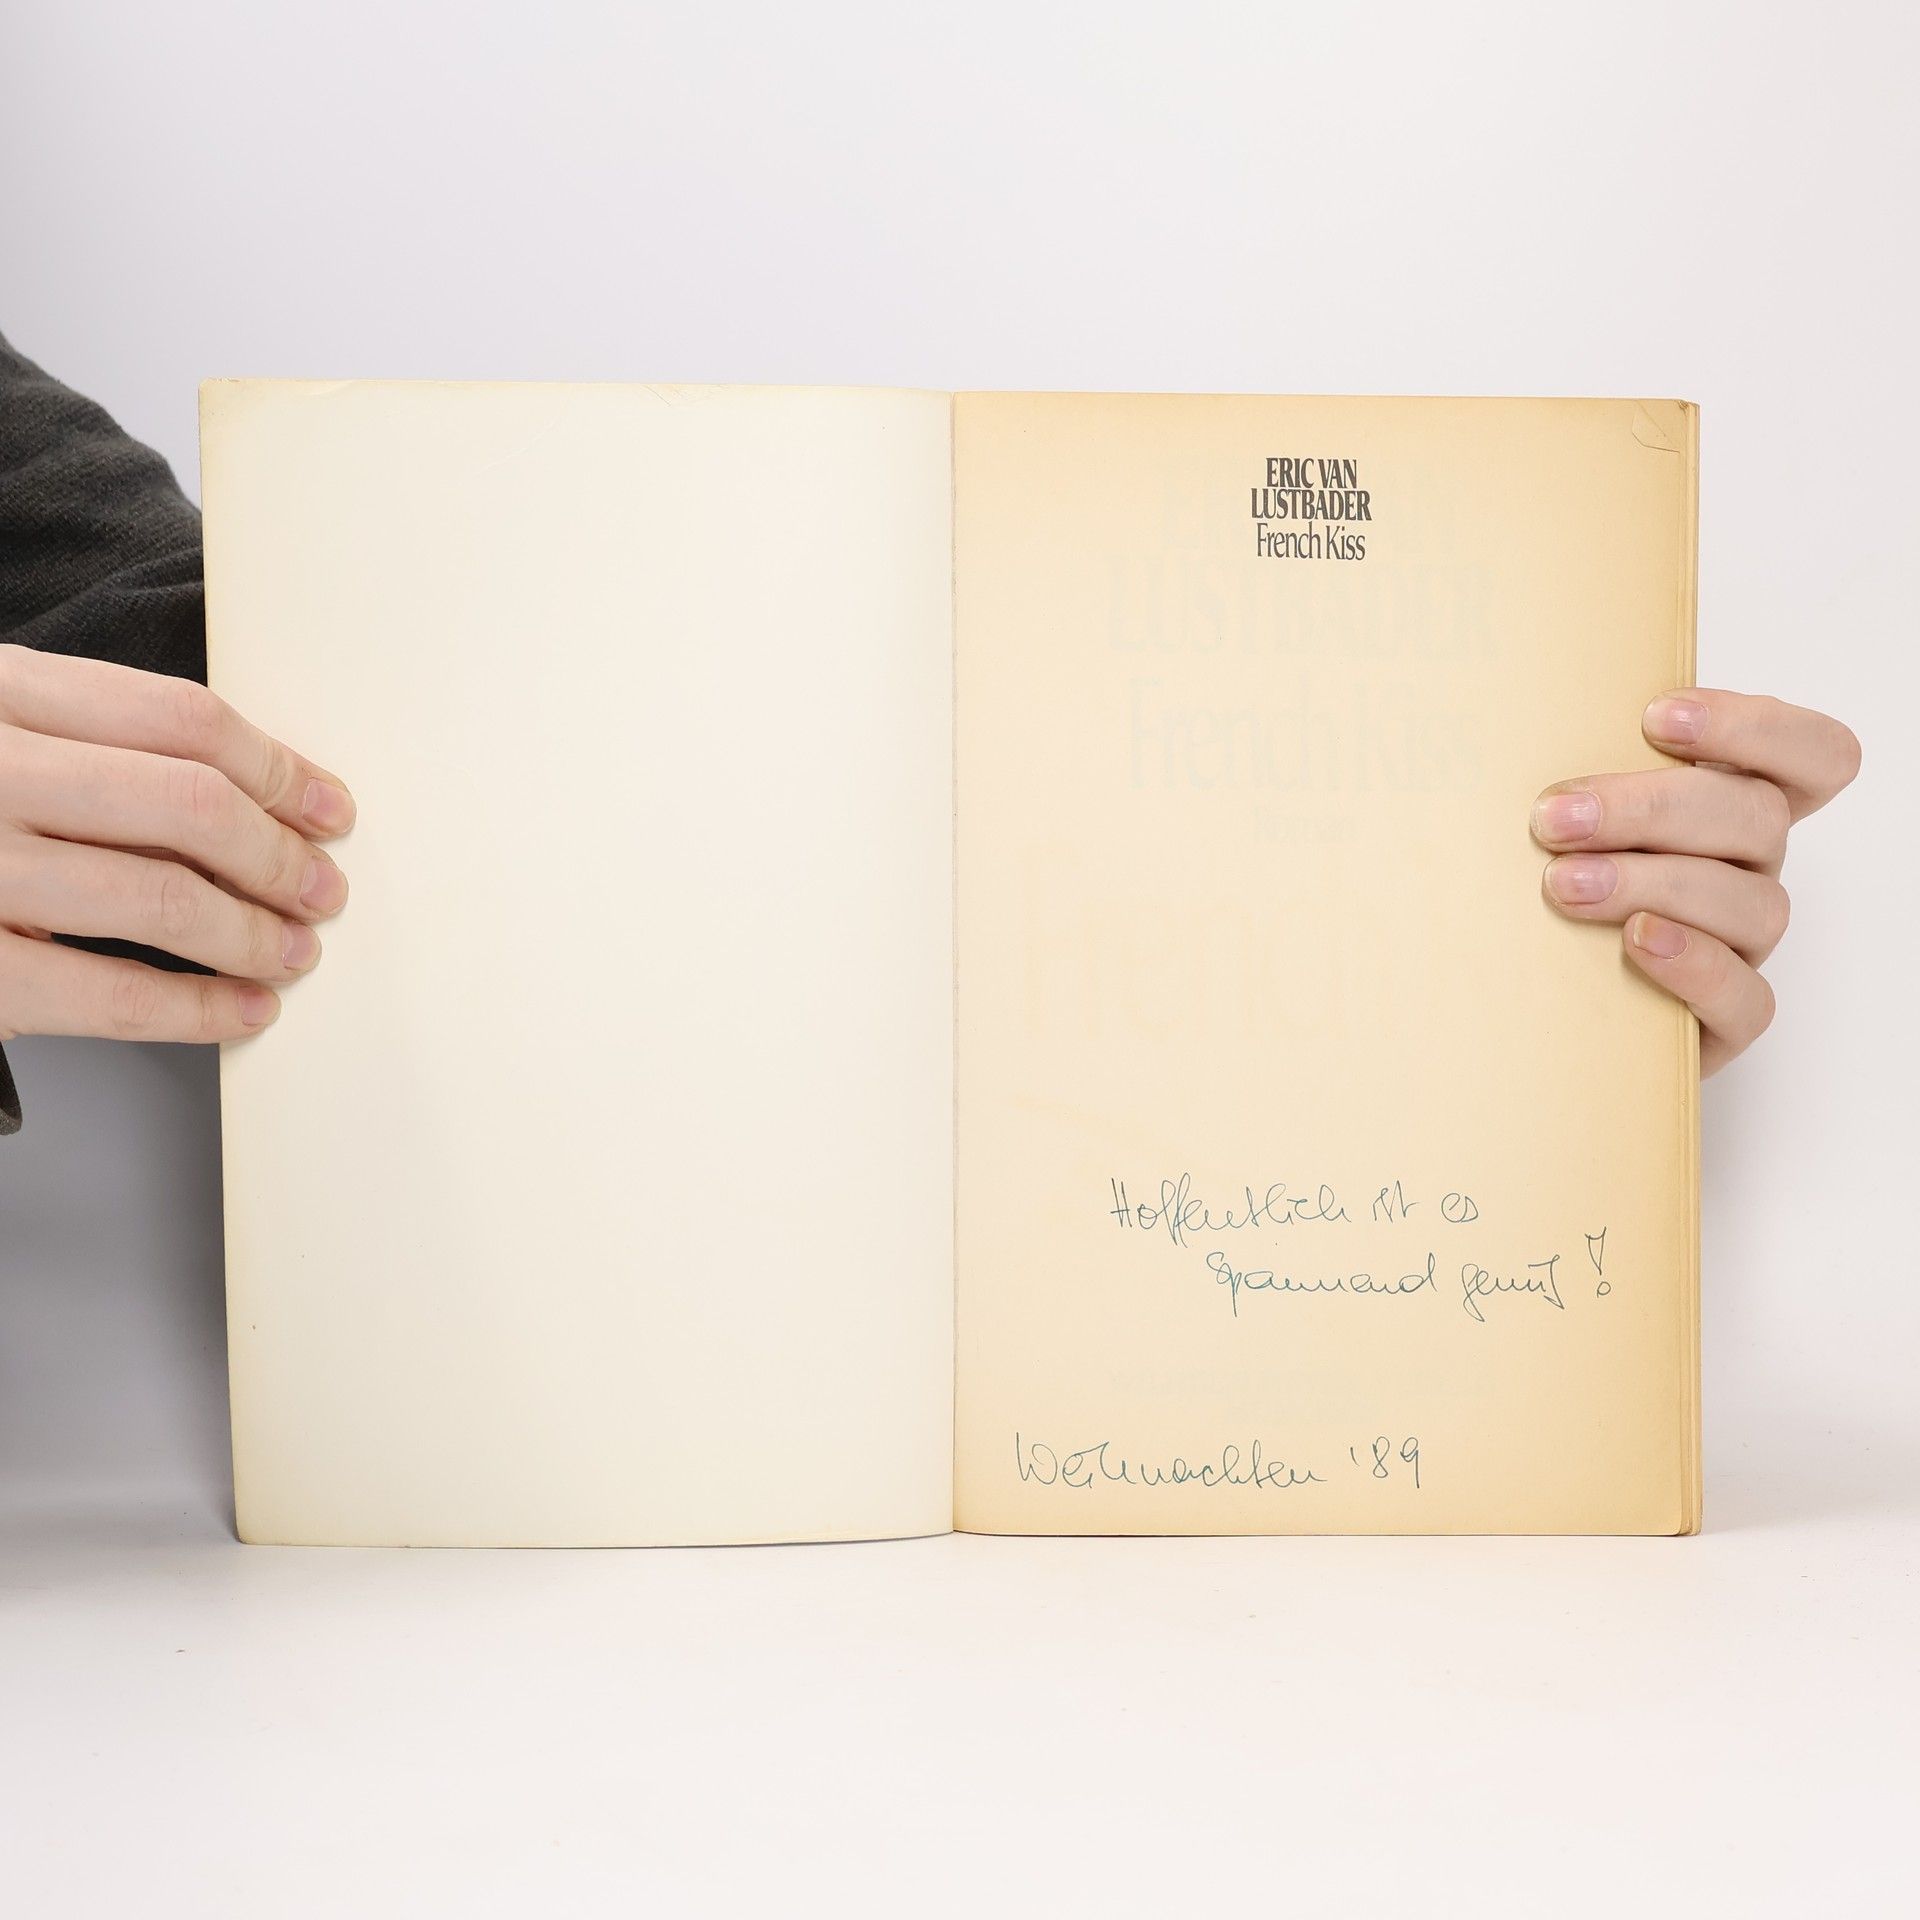 ERIC VAN
LUSTBADER
French Kiss
Hoffentlich ist es
spannend genug!
Weihnachten '89